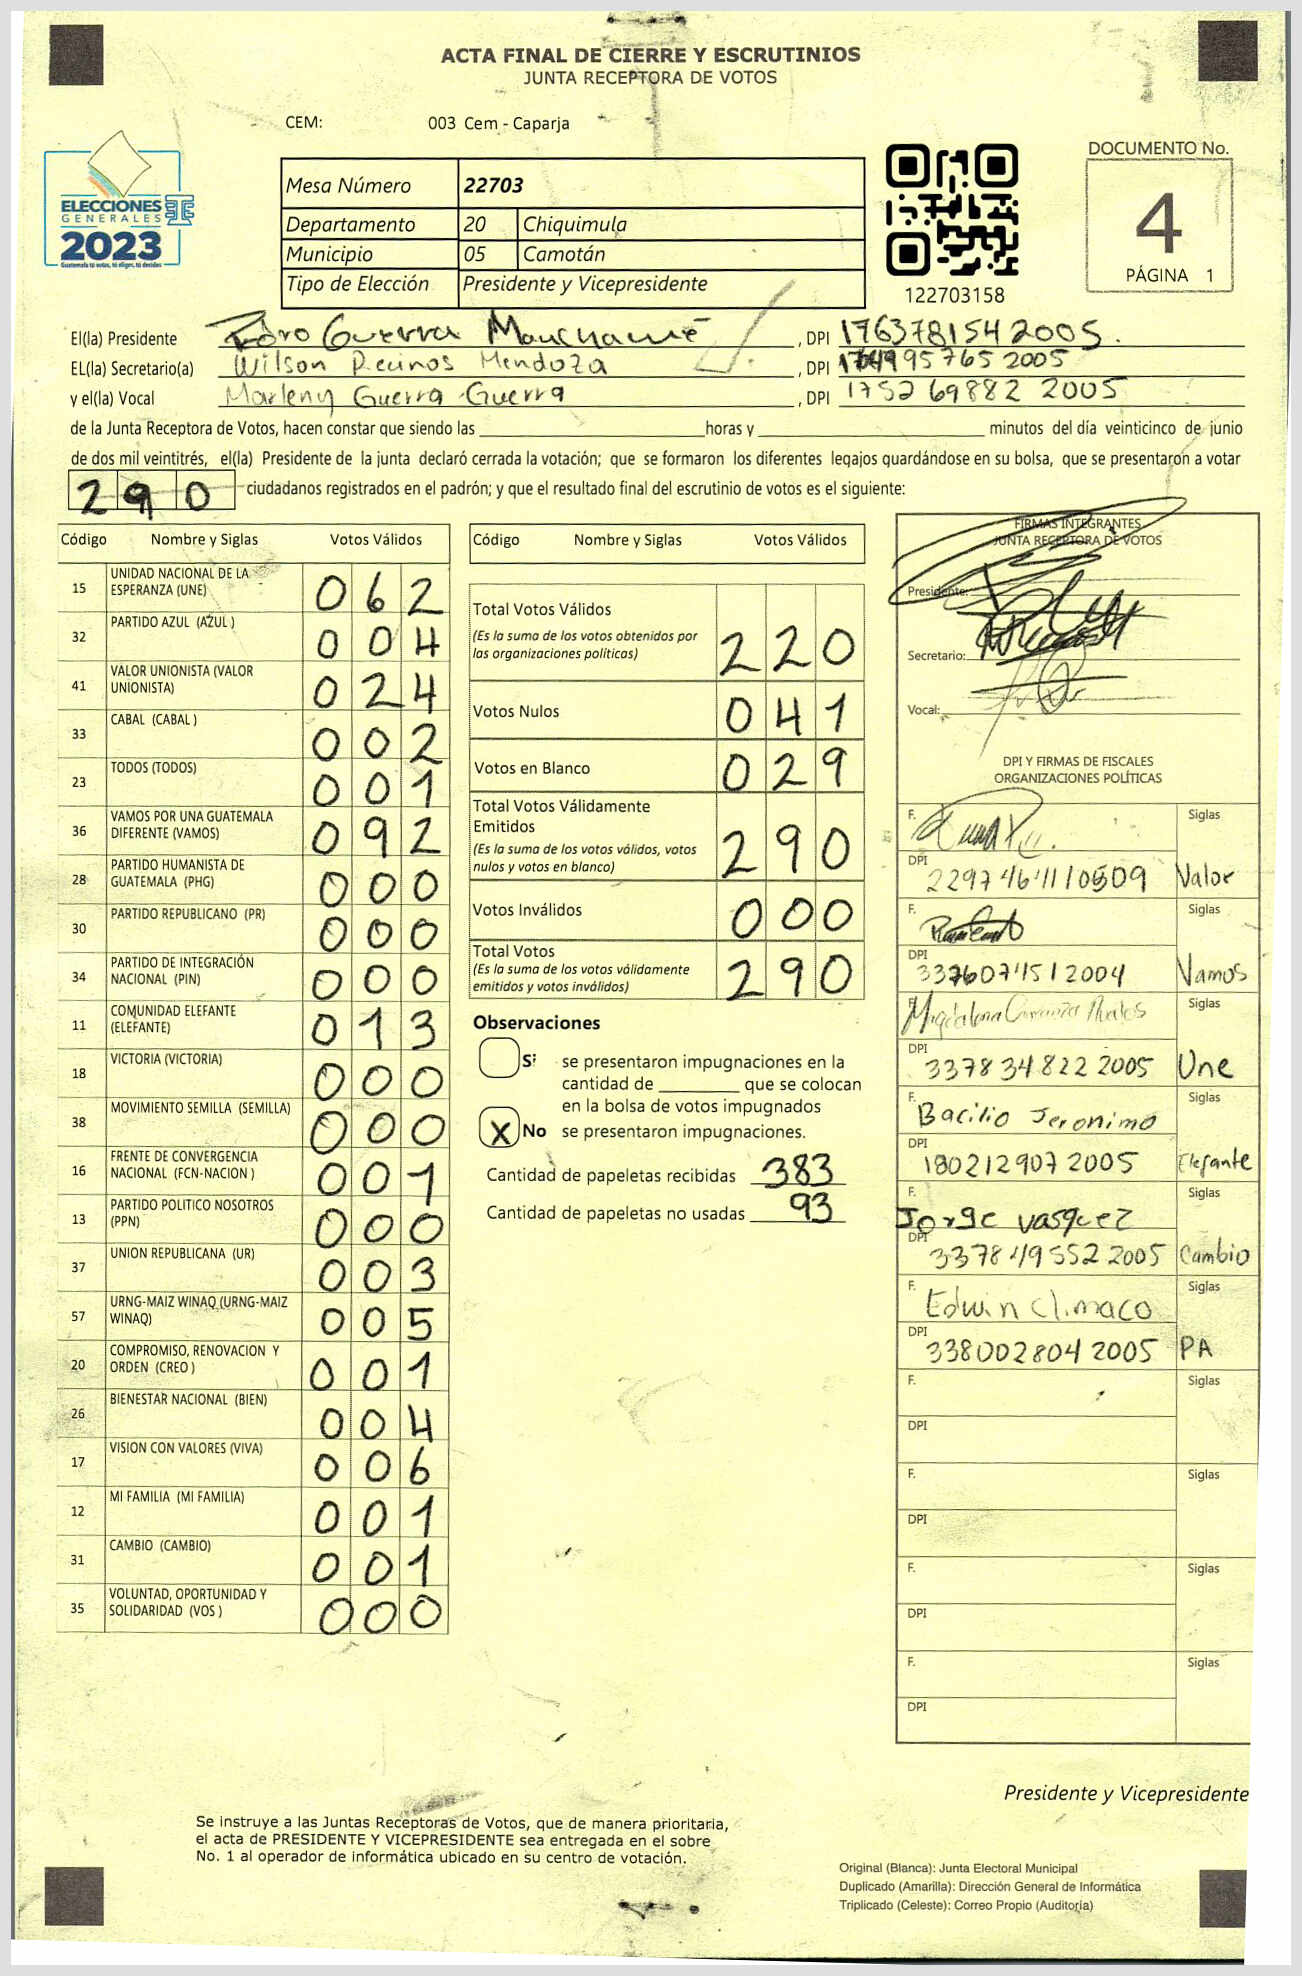 ACTA FINAL DE CIERRE Y ESCRUTINIOS
JUNTA RECEPTORA DE VOTOS
CEM: 003 Cem - Caparja
ELECCIONES
GENERALES
2023
Guatemala tú votas, tú eliges, tú decides
Mesa Número 22703
Departamento 20 Chiquimula
Municipio 05 Camotán
Tipo de Elección Presidente y Vicepresidente
122703158
DOCUMENTO No.
4
PÁGINA 1
El(la) Presidente Guerra , DPI 176378154 2005
EL(la) Secretario(a) Wilson Recinos Mendoza , DPI 95765 2005
y el(la) Vocal Marleny Guerra Guerra , DPI 1752 69882 2005
de la Junta Receptora de Votos, hacen constar que siendo las horas y minutos del día veinticinco de junio
de dos mil veintitrés, el(la) Presidente de la junta declaró cerrada la votación; que se formaron los diferentes legajos guardándose en su bolsa, que se presentaron a votar
290 ciudadanos registrados en el padrón; y que el resultado final del escrutinio de votos es el siguiente:
Código Nombre y Siglas Votos Válidos
15 UNIDAD NACIONAL DE LA ESPERANZA (UNE) 062
32 PARTIDO AZUL (AZUL ) 004
41 VALOR UNIONISTA (VALOR UNIONISTA) 024
33 CABAL (CABAL ) 002
23 TODOS (TODOS) 001
36 VAMOS POR UNA GUATEMALA DIFERENTE (VAMOS) 092
28 PARTIDO HUMANISTA DE GUATEMALA (PHG) 000
30 PARTIDO REPUBLICANO (PR) 000
34 PARTIDO DE INTEGRACIÓN NACIONAL (PIN) 000
11 COMUNIDAD ELEFANTE (ELEFANTE) 013
18 VICTORIA (VICTORIA) 000
38 MOVIMIENTO SEMILLA (SEMILLA) 000
16 FRENTE DE CONVERGENCIA NACIONAL (FCN-NACION ) 001
13 PARTIDO POLITICO NOSOTROS (PPN) 000
37 UNION REPUBLICANA (UR) 003
57 URNG-MAIZ WINAQ (URNG-MAIZ WINAQ) 005
20 COMPROMISO, RENOVACION Y ORDEN (CREO ) 001
26 BIENESTAR NACIONAL (BIEN) 004
17 VISION CON VALORES (VIVA) 006
12 MI FAMILIA (MI FAMILIA) 001
31 CAMBIO (CAMBIO) 001
35 VOLUNTAD, OPORTUNIDAD Y SOLIDARIDAD (VOS ) 000
Código Nombre y Siglas Votos Válidos
Total Votos Válidos 220
(Es la suma de los votos obtenidos por
las organizaciones políticas)
Votos Nulos 041
Votos en Blanco 029
Total Votos Válidamente
Emitidos 290
(Es la suma de los votos válidos, votos
nulos y votos en blanco)
Votos Inválidos 000
Total Votos 290
(Es la suma de los votos válidamente
emitidos y votos inválidos)
Observaciones
Sí se presentaron impugnaciones en la
cantidad de que se colocan
en la bolsa de votos impugnados
X No se presentaron impugnaciones.
Cantidad de papeletas recibidas 383
Cantidad de papeletas no usadas 93
FIRMAS INTEGRANTES
JUNTA RECEPTORA DE VOTOS
Presidente:
Secretario:
Vocal:
DPI Y FIRMAS DE FISCALES
ORGANIZACIONES POLÍTICAS
F. Siglas
DPI Valor
F. Siglas
DPI Vamos
F. Magdalena Siglas
DPI 3378 34822 2005 Une
F. Bacilio Jeronimo Siglas
DPI 180212907 2005 Elefante
F. Jorge Vasquez Siglas
DPI 337849552 2005 Cambio
F. Edwin Climaco Siglas
DPI 338002804 2005 PA
F. Siglas
DPI
F. Siglas
DPI
F. Siglas
DPI
F. Siglas
DPI
Presidente y Vicepresidente
Se instruye a las Juntas Receptoras de Votos, que de manera prioritaria,
el acta de PRESIDENTE Y VICEPRESIDENTE sea entregada en el sobre
No. 1 al operador de informática ubicado en su centro de votación.
Original (Blanca): Junta Electoral Municipal
Duplicado (Amarilla): Dirección General de Informática
Triplicado (Celeste): Correo Propio (Auditoría)